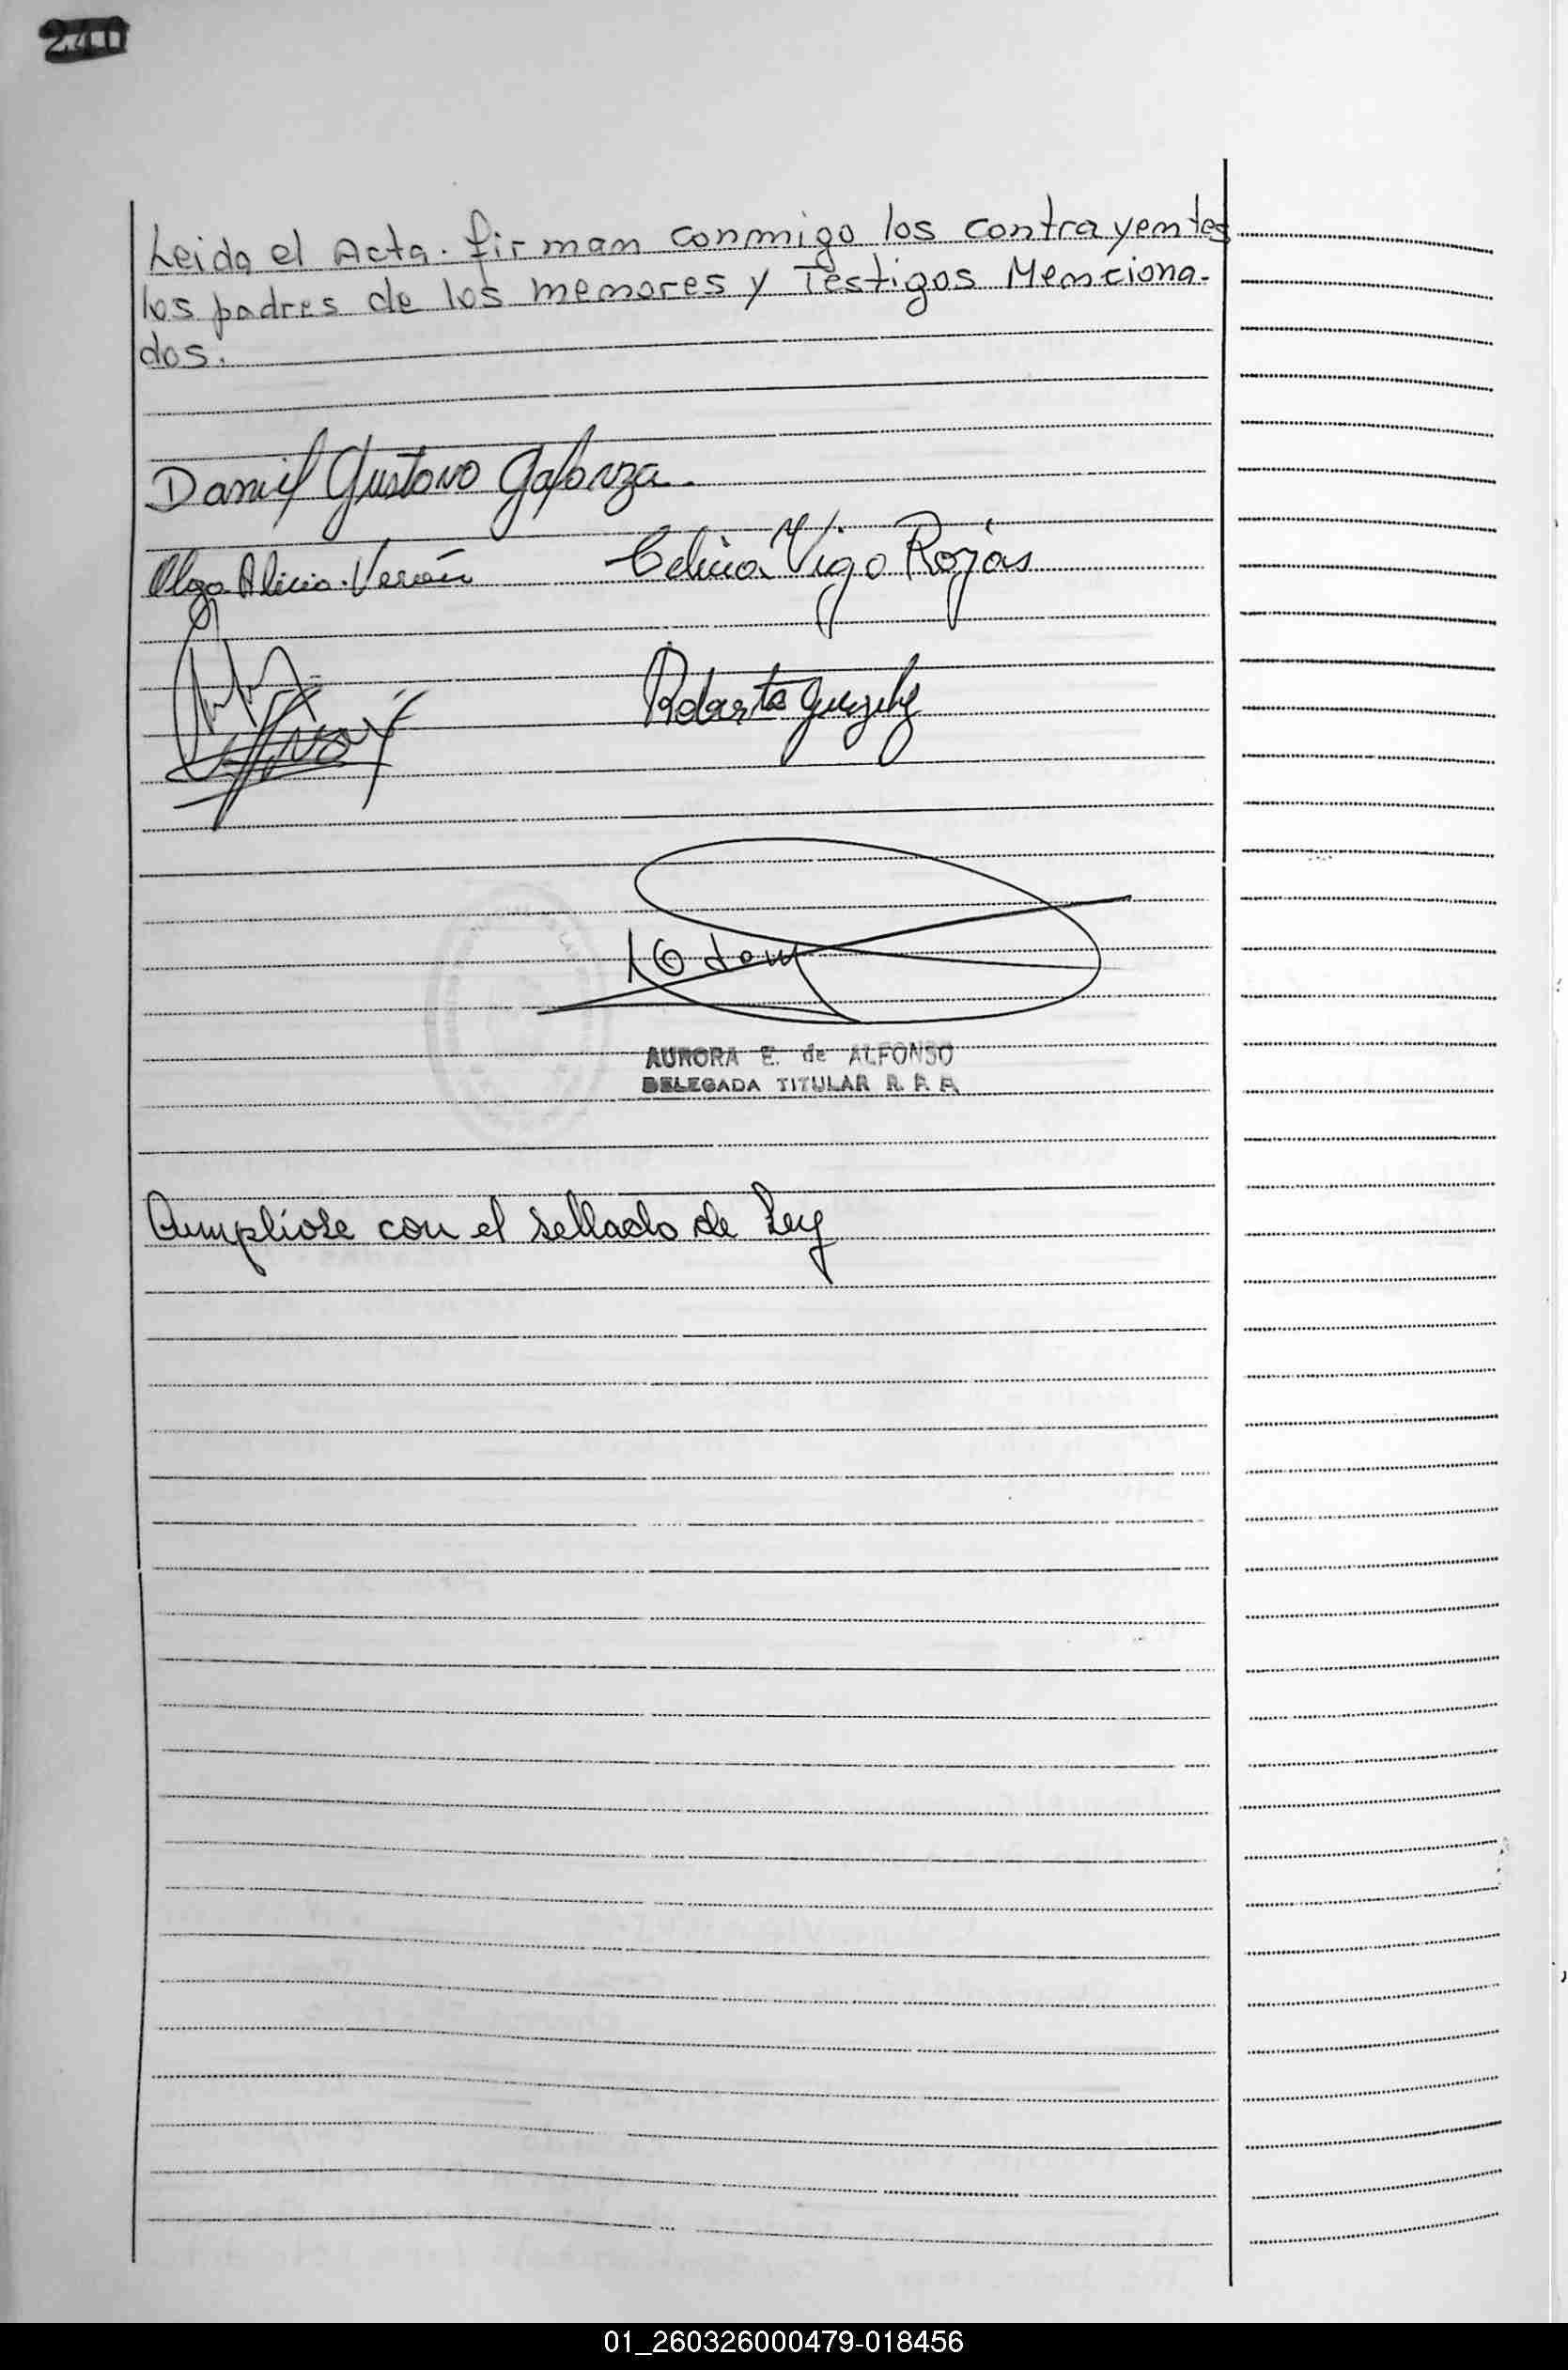 240
Leida el Acta. firman conmigo los contrayentes
los padres de los menores y Testigos Menciona-
dos.
Daniel Gustavo Galarza.
Olga Alicia Verón Celina Vigo Rojas
Roberto
AURORA E. de ALFONSO
DELEGADA TITULAR R. P. P.
Cumpliose con el sellado de Ley
01_260326000479-018456